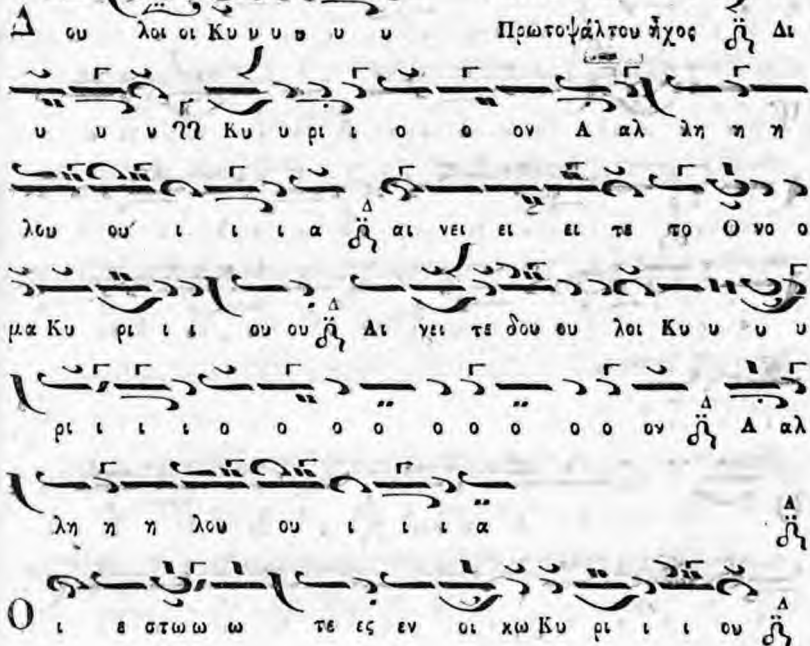 Δ ου λοι οι Κυ υ υ υ υ υ Πρωτοψάλτου ἦχος Δι
υ υ υ Κυ υ ρι ι ο ο ον Α αλ λη η η
λου ου ι ι ι α Δ αι νει ει ει τε το Ο νο ο
μα Κυ ρι ι ι ου ου Δ Αι νει τε δου ου λοι Κυ υ υ υ
ρι ι ι ι ο ο ο ο ο ο ο ο ον Δ Α αλ
λη η η λου ου ι ι ι α Δ
Ο ι ε στω ω ω τε ες εν οι κω Κυ ρι ι ι ου Δ